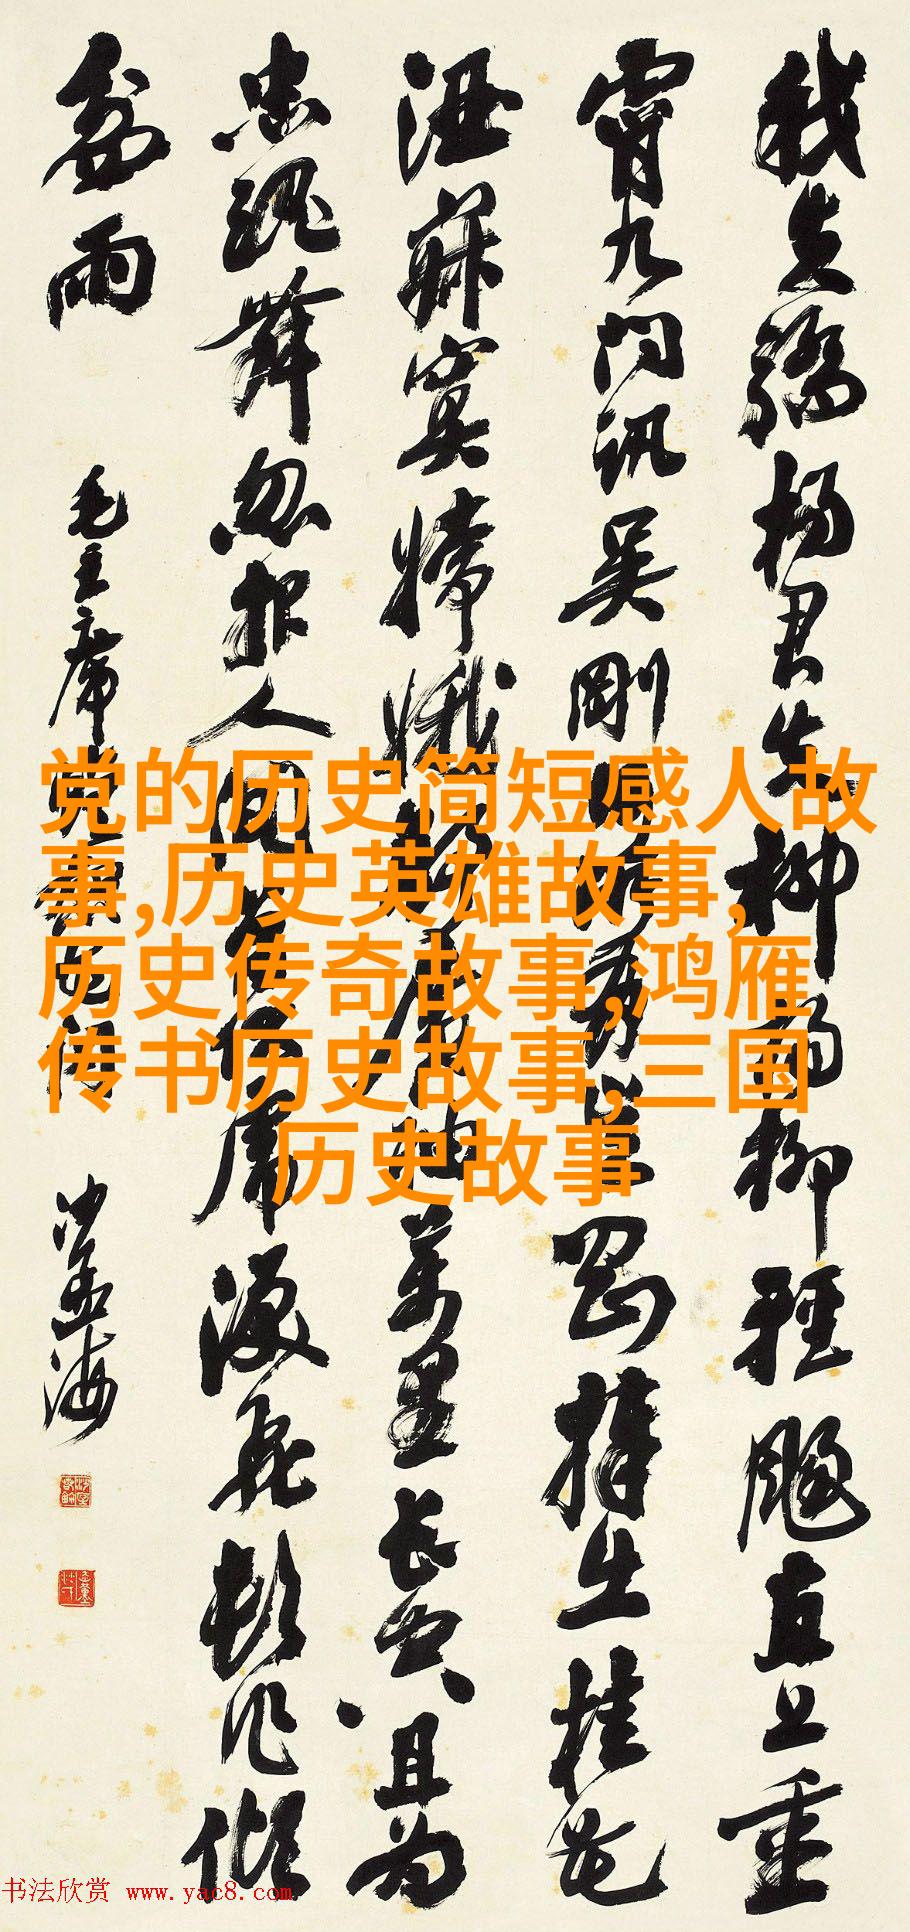 我失驕楊君失柳楊柳輕颺直上重
霄九問訊吳剛何所有吳剛捧出桂花
酒寂寞嫦娥舒廣袖萬里長空且為
忠魂舞忽報人間曾伏虎淚飛頓作傾
盆雨
毛主席
沙孟海
党的历史简短感人故
事,历史英雄故事,
历史传奇故事,鸿雁
传书历史故事,三国
历史故事
书法欣赏 www.yac8.com